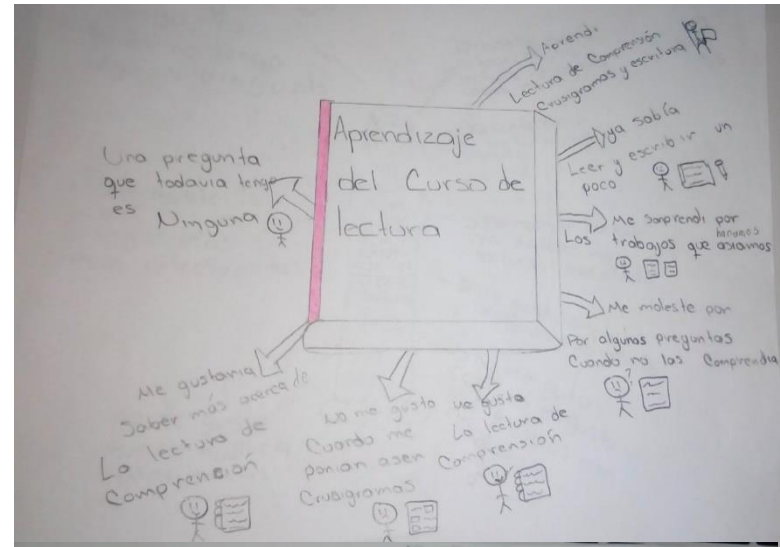 Aprendizaje
del Curso de
lectura
Aprendi
Lectura de Comprensión
Crusigramas y escritura
ya sabía
Leer y escribir un
poco
Me sorprendi por
Los trabajos que haciamos
Me moleste por
Por algunas preguntas
Cuando no las Comprendia
Me gusto
La lectura de
Comprensión
No me gusto
Cuando me
ponian aser
Crusigramas
Me gustaria
Saber más acerca de
La lectura de
Comprensión
Una pregunta
que todavia tengo
es Ninguna